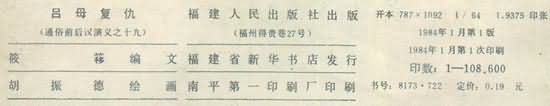 吕母复仇
(通俗前后汉演义之十九)
筱䔥编文
胡振德绘画
福建人民出版社出版
(福州得贵巷27号)
福建省新华书店发行
南平第一印刷厂印刷
开本 787×1092 1/64 1.9375 印张
1984年1月第1版
1984年1月第1次印刷
印数：1—108,600
书号：8173·722 定价：0.19 元